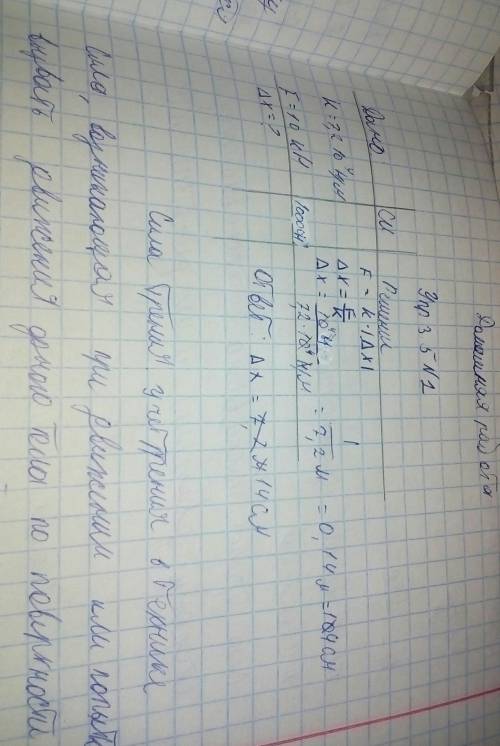 Домашняя работа
Упр 35 №1
Дано СИ Решение
k = 7,2·10⁴ Н/м F = k·|Δx|
F = 10 кН 10000Н Δx = F/k
Δx = ? Δx = 10⁴Н / 7,2·10⁴ Н/м = 1/7,2 м = 0,14 м = 14 см
Ответ: Δx = 14 см
Сила трения. трения в технике
Сила, возникающая при движении или попыт
вызвать движения одного тела по поверхности